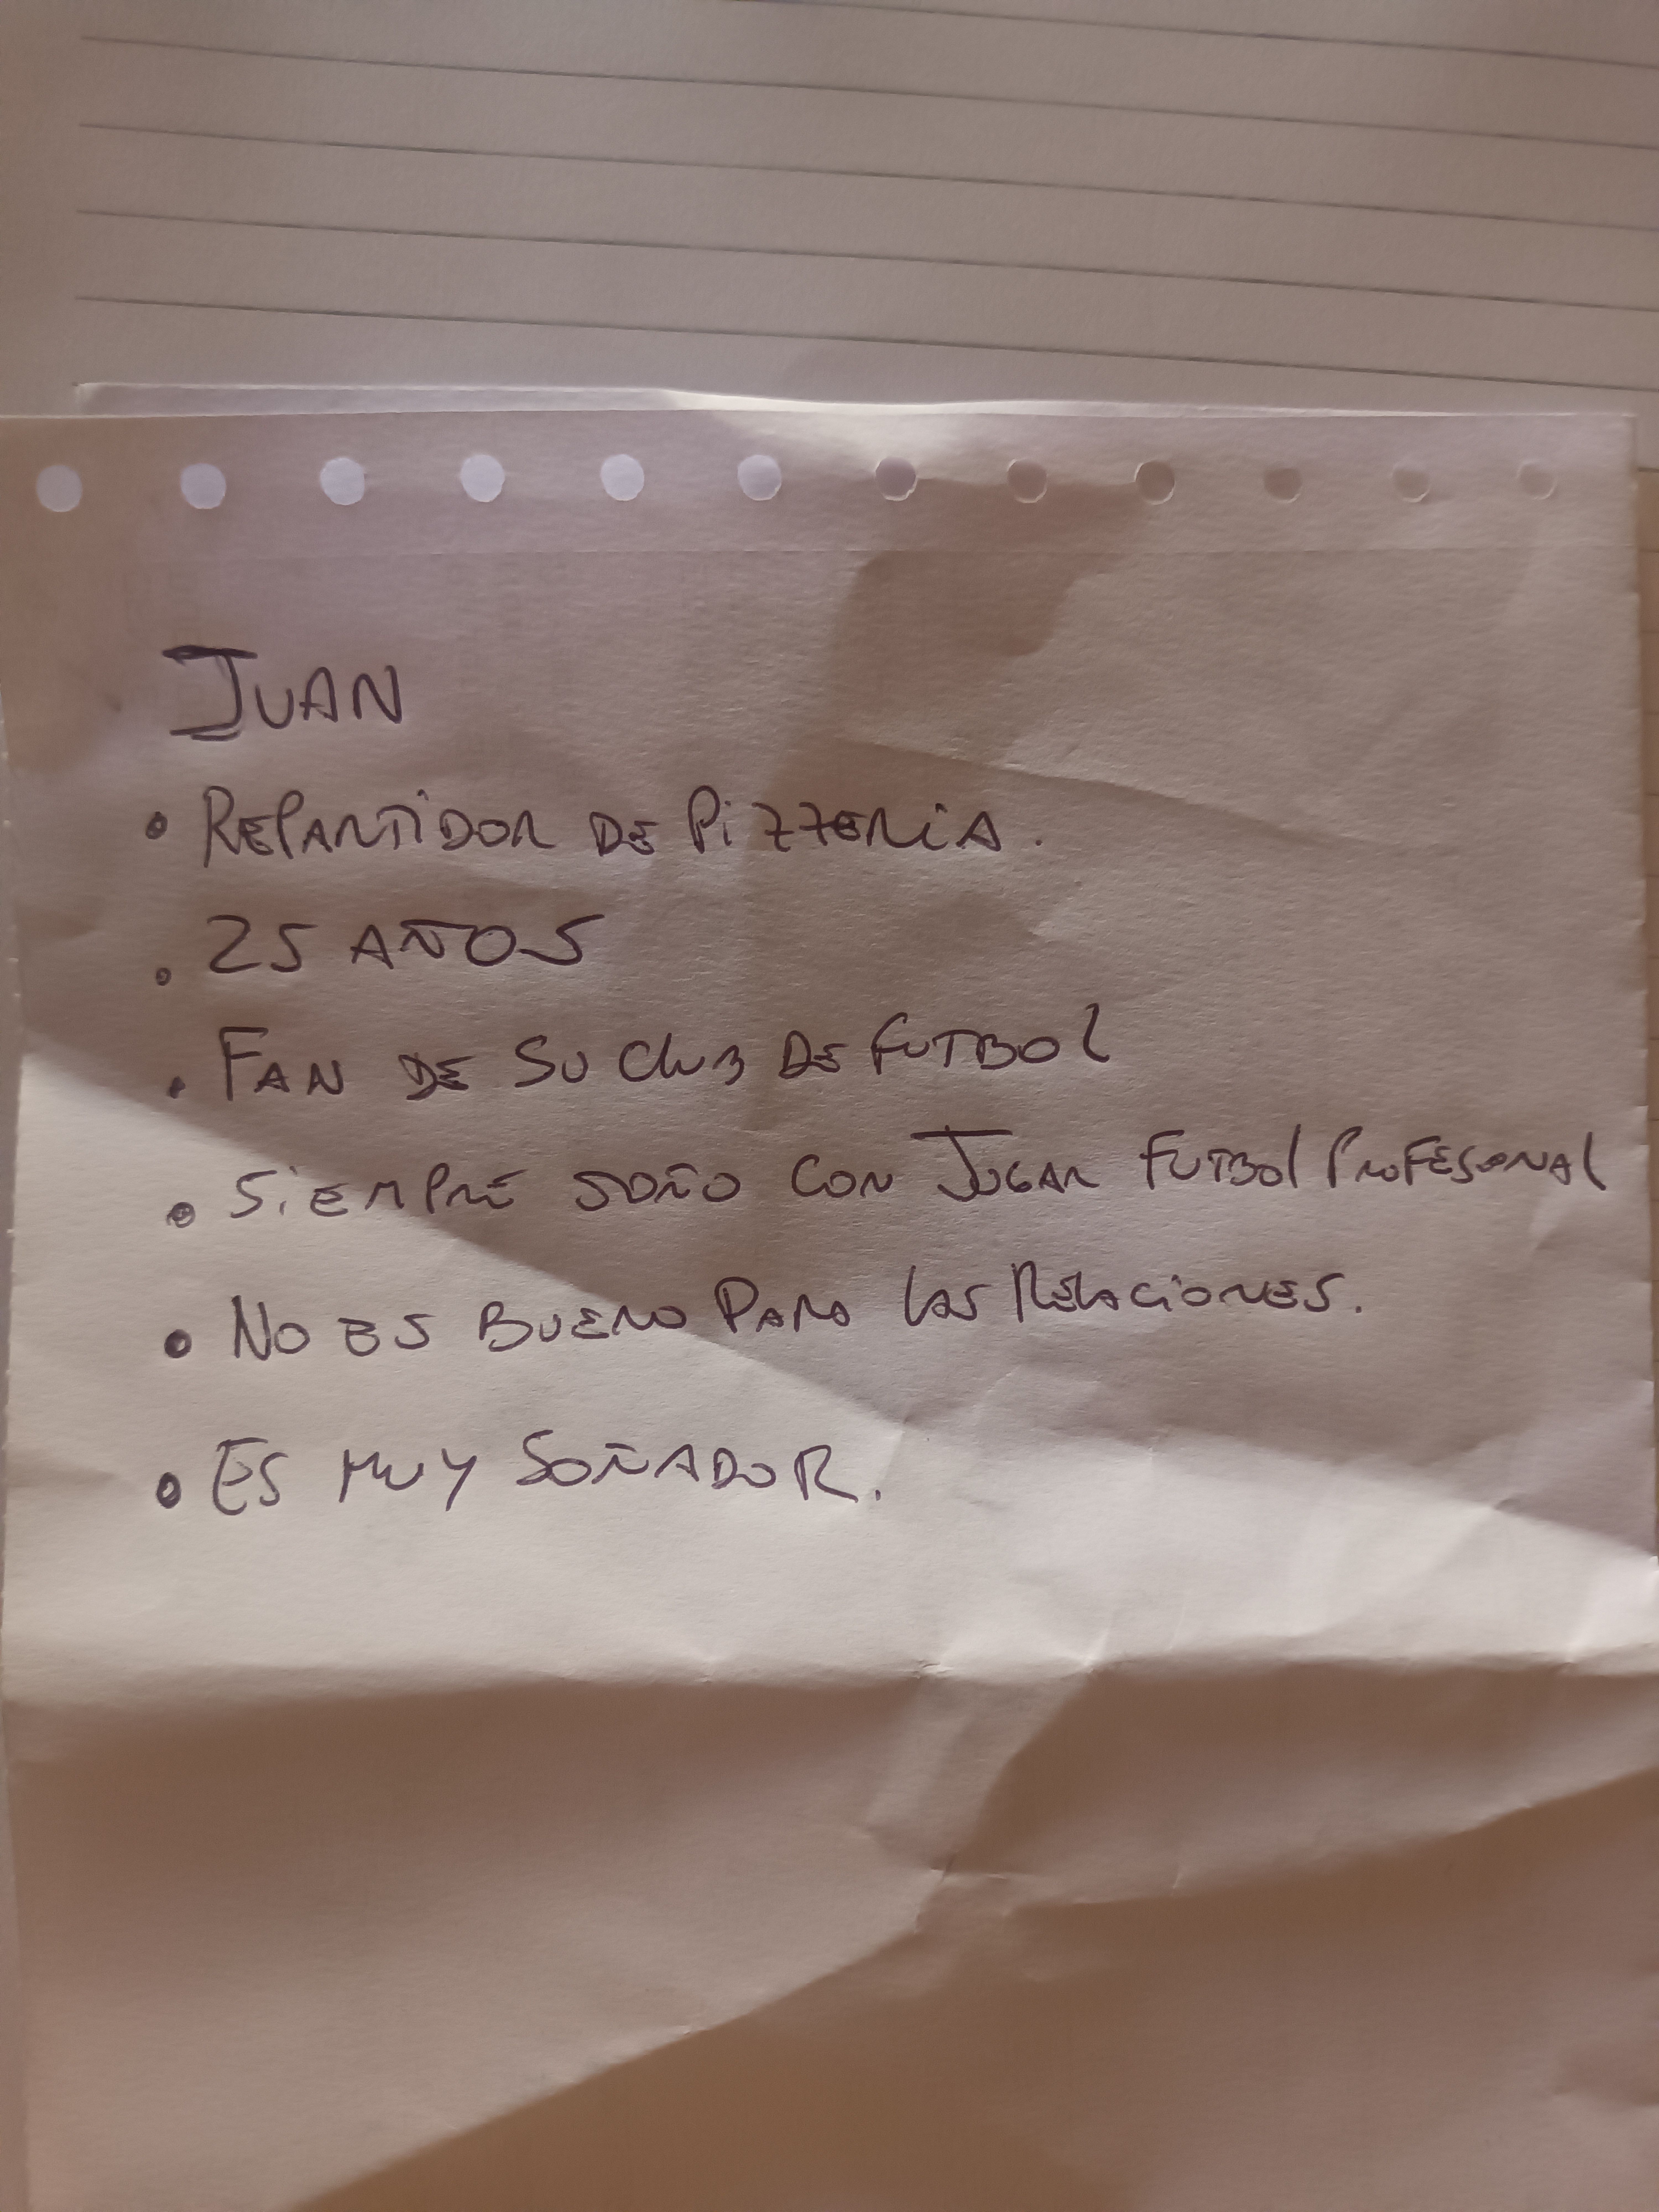 JUAN
• REPARTIDOR DE PIZZERIA.
• 25 AÑOS
• FAN DE SU CLUB DE FUTBOL
• SIEMPRE SOÑO CON JUGAR FUTBOL PROFESIONAL
• NO ES BUENO PARA LAS RELACIONES.
• ES MUY SOÑADOR.